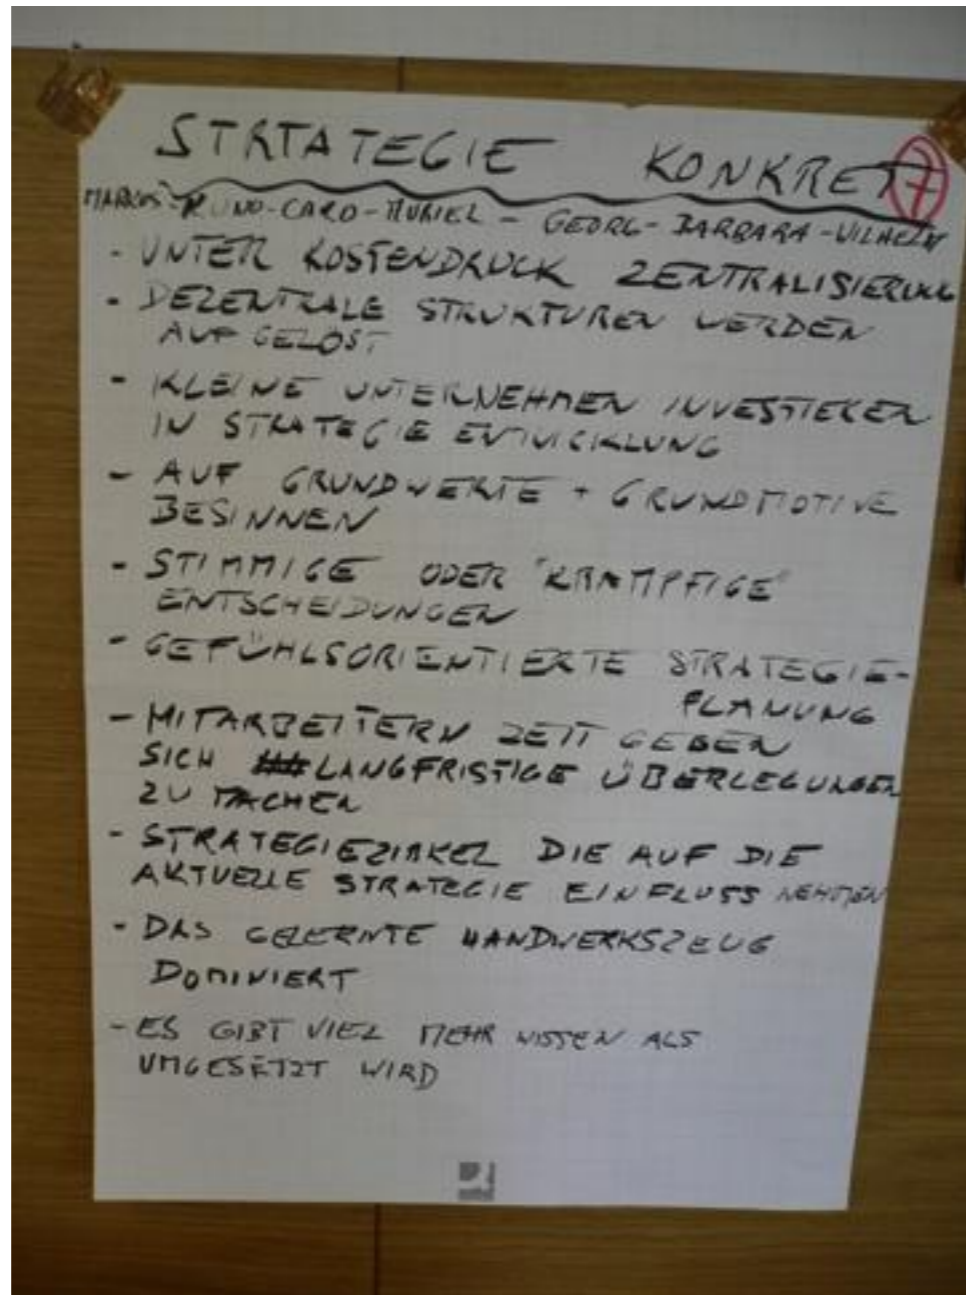 STRTATEGIE KONKRET 7
MARKUS - RUNO - CARO - MURIEL - GEORG - BARBARA - WILHELM
- UNTER KOSTENDRUCK ZENTRALISIERUNG
- DEZENTRALE STRUKTUREN WERDEN
AUFGELÖST
- KLEINE UNTERNEHMEN INVESTIEREN
IN STRATEGIE ENTWICKLUNG
- AUF GRUNDWERTE + GRUNDMOTIVE
BESINNEN
- STIMMIGE ODER "KRAMPFIGE"
ENTSCHEIDUNGEN
- GEFÜHLSORIENTIERTE STRATEGIE-
PLANUNG
- MITARBEITERN ZEIT GEBEN
SICH LANGFRISTIGE ÜBERLEGUNGEN
ZU MACHEN
- STRATEGIEZIRKEL DIE AUF DIE
AKTUELLE STRATEGIE EINFLUSS NEHMEN
- DAS GELERNTE HANDWERKSZEUG
DOMINIERT
- ES GIBT VIEL MEHR WISSEN ALS
UMGESETZT WIRD